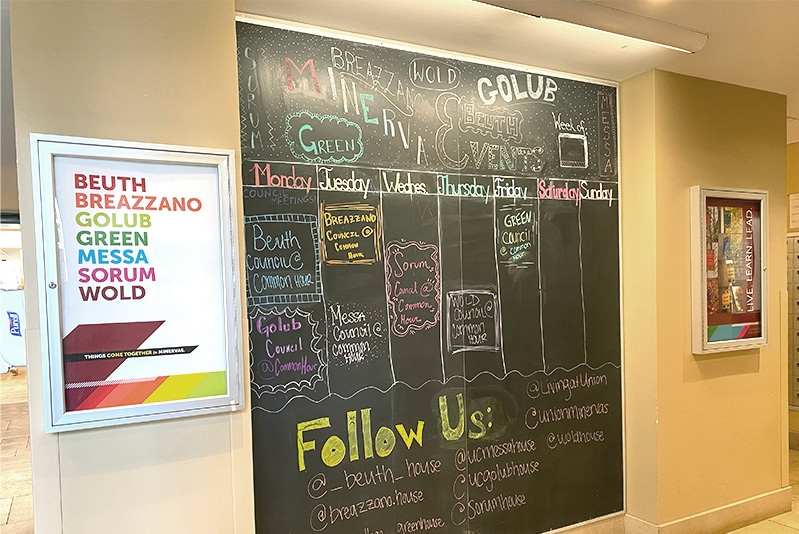 BEUTH
BREAZZANO
GOLUB
GREEN
MESSA
SORUM
WOLD
THINGS COME TOGETHER in MINERVAS.
SORUM
BREAZZANO
WOLD
GOLUB
MESSA
MINERVA
GREEN
&
BEUTH
EVENTS
Week of
Monday Tuesday Wednes. Thursday Friday Saturday Sunday
COUNCIL MEETINGS!
Beuth
Council @
Common Hour
Golub
Council
@ Common Hour
BREAZZANO
COUNCIL @
Common
Hour
Messa
Council @
Common
Hour
Sorum
@
Common
Hour
WOLD
Council @
Common
Hour
GREEN
Council
@
Common
Hour
Follow Us:
@_beuth_house
@breazzano.house
greenhouse
@ucmessahouse
@ucgolubhouse
@sorumhouse
@LivingatUnion
@unionminervas
@woldhouse
LIVE. LEARN. LEAD.
Purell